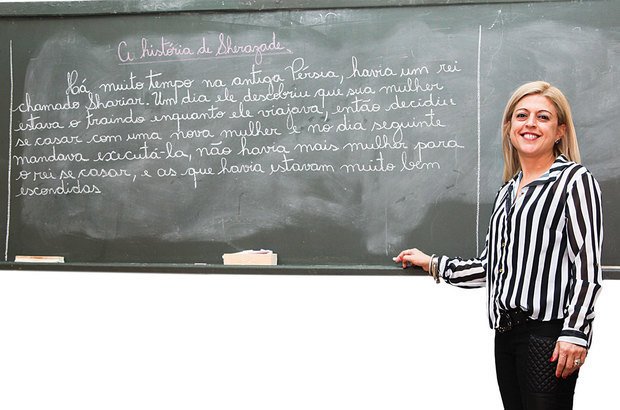 A história de Sherazade.
Há muito tempo na antiga Pérsia, havia um rei
chamado Shariar. Um dia ele descobriu que sua mulher
estava o traindo enquanto ele viajava, então decidiu
se casar com uma nova mulher e no dia seguinte
mandava executá-la, não havia mais mulher para
o rei se casar, e as que haviam estavam muito bem
escondidas